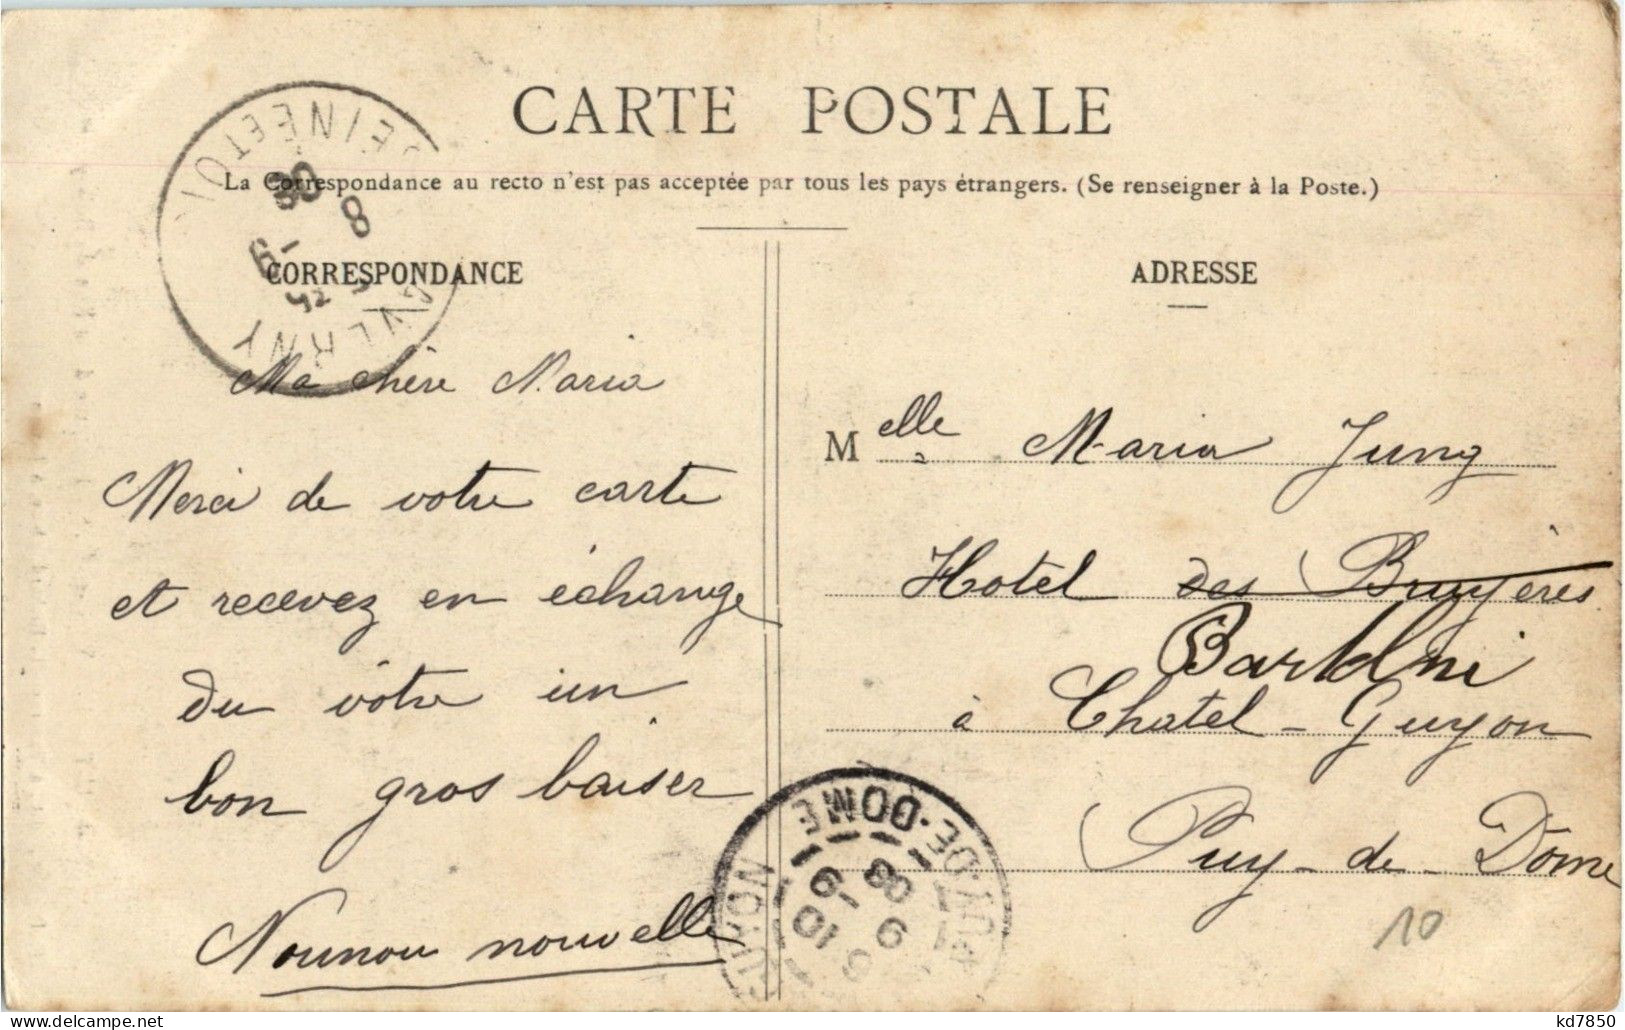 CARTE POSTALE
La Correspondance au recto n'est pas acceptée par tous les pays étrangers. (Se renseigner à la Poste.)
CORRESPONDANCE
Ma chère Maria
Merci de votre carte
et recevez en échange
du vôtre un
bon gros baiser
Nounou nouvelle
ADRESSE
Melle Maria Jung
Hotel des Bruyères
à Chatel-Guyon
Puy-de-Dôme
10
8
08
PUY-DE-DOME
10
9
08
kd7850